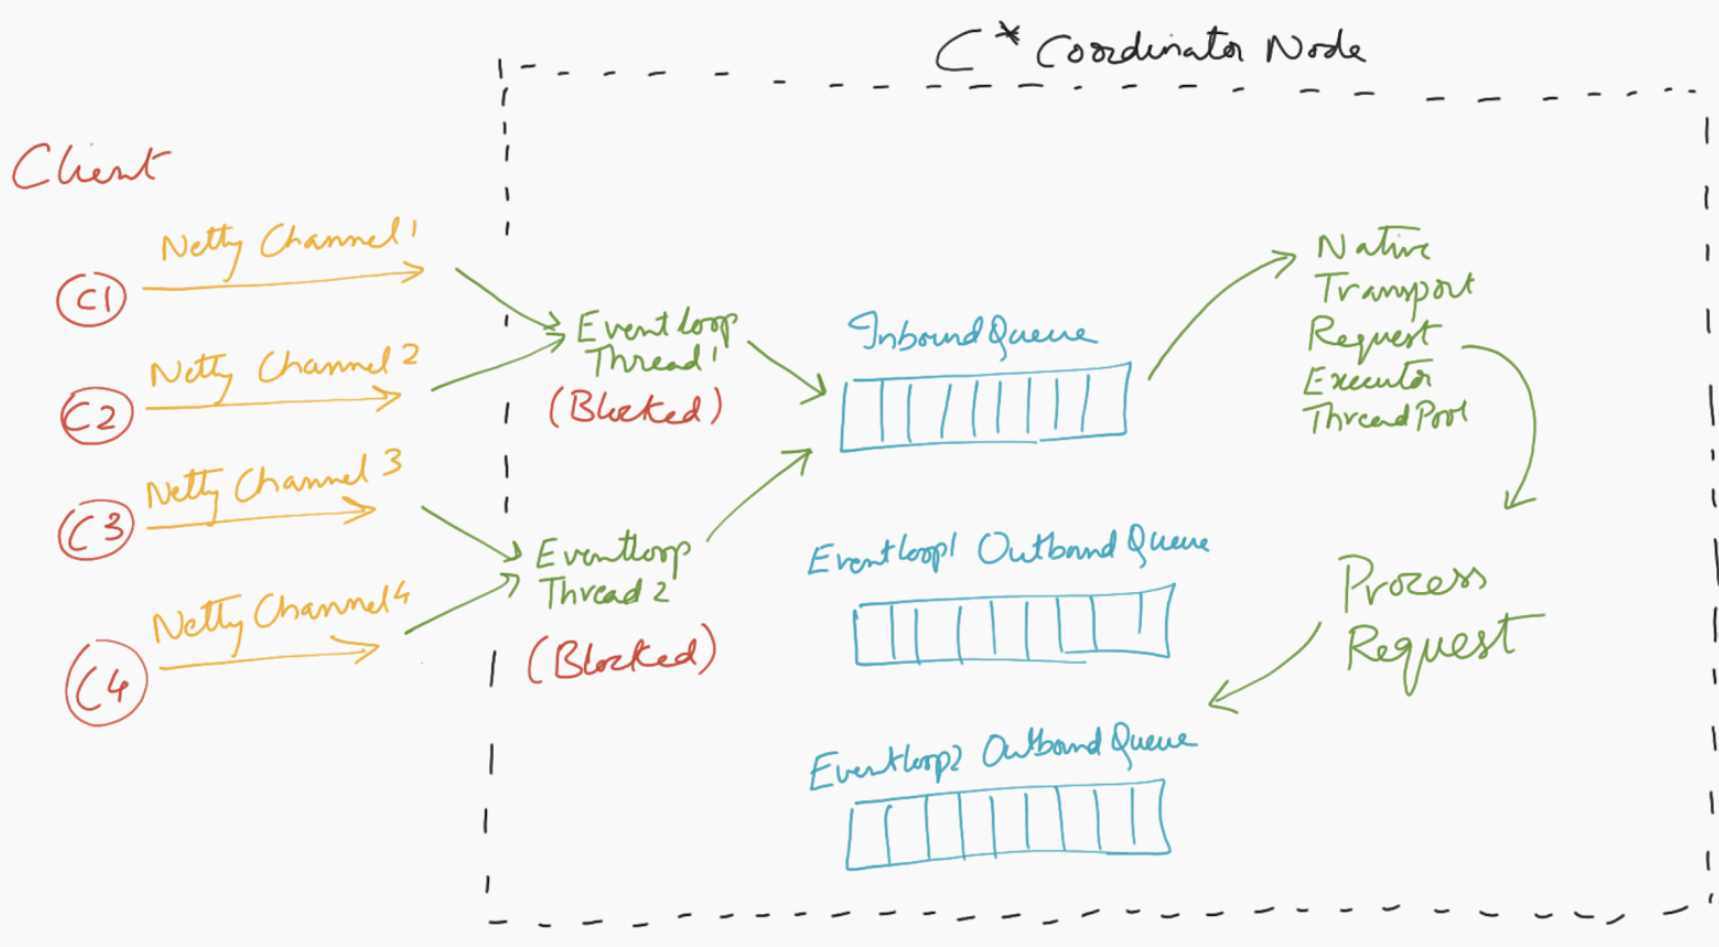 C* Coordinator Node
Client
Netty Channel 1
C1
Netty Channel 2
C2
Netty Channel 3
C3
Netty Channel 4
C4
Event loop
Thread 1
(Blocked)
Eventloop
Thread 2
(Blocked)
Inbound Queue
Eventloop1 Outbound Queue
Eventloop2 Outbound Queue
Native
Transport
Request
Executor
ThreadPool
Process
Request